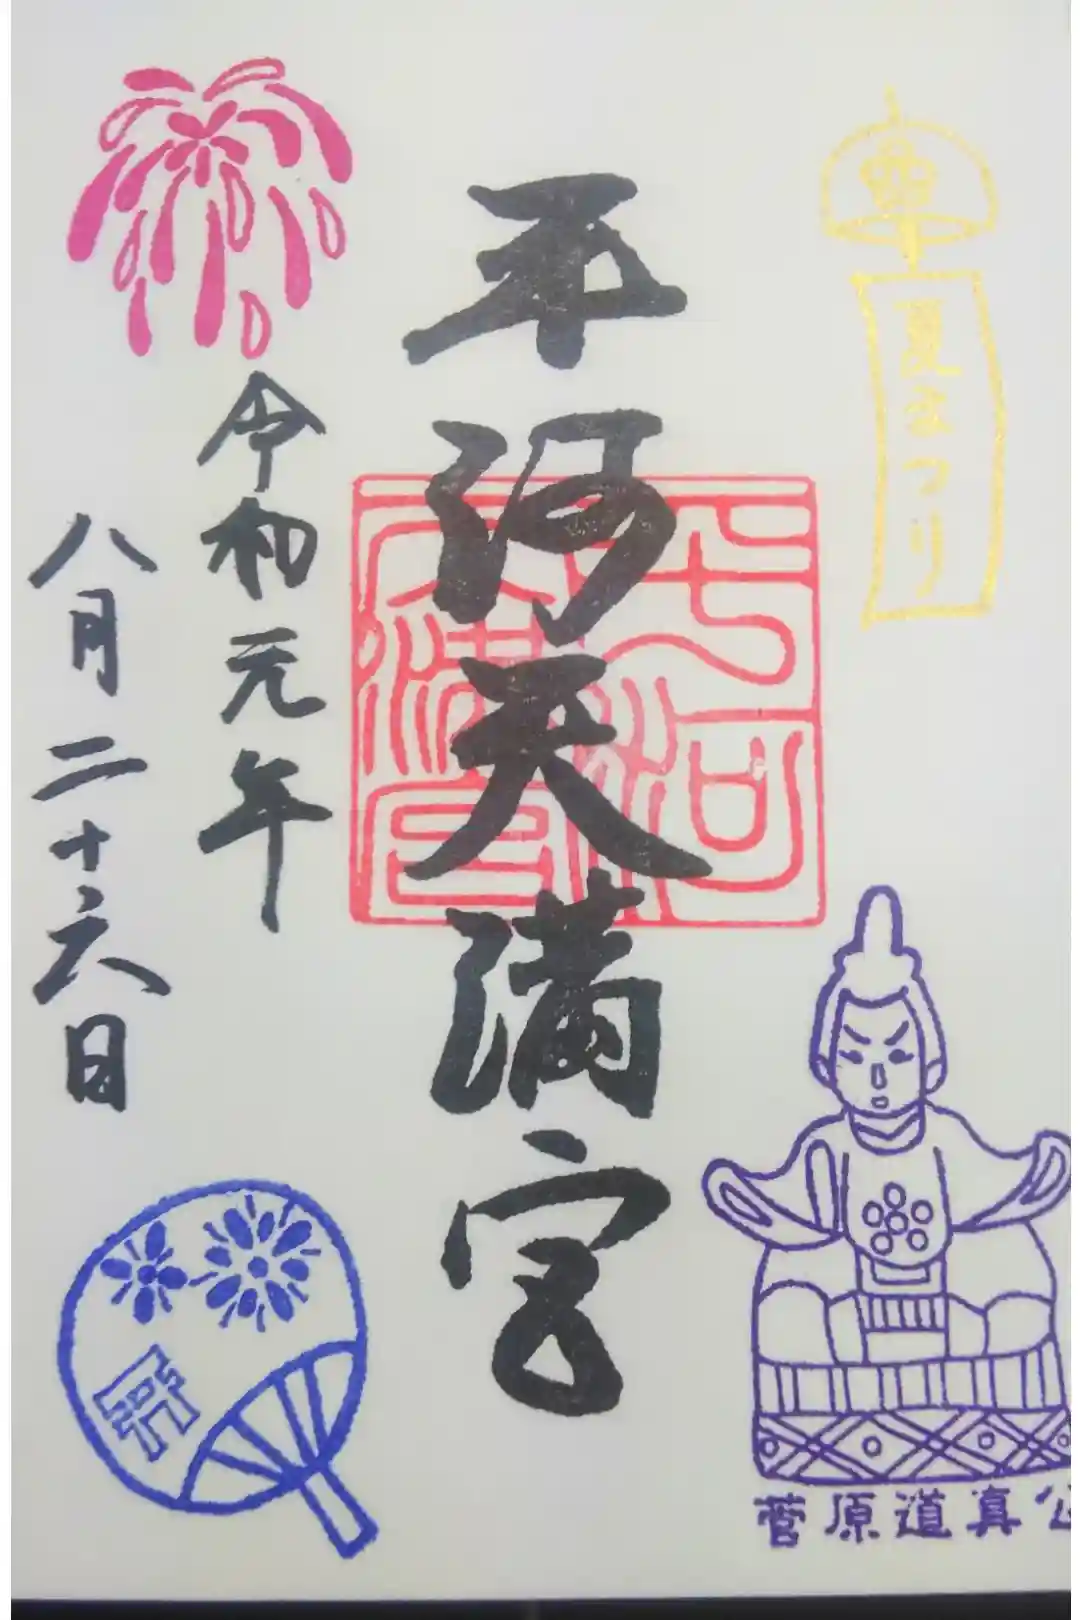 夏まつり
菅原道真公
平河天満宮
平河天満宮
令和元年
八月二十六日